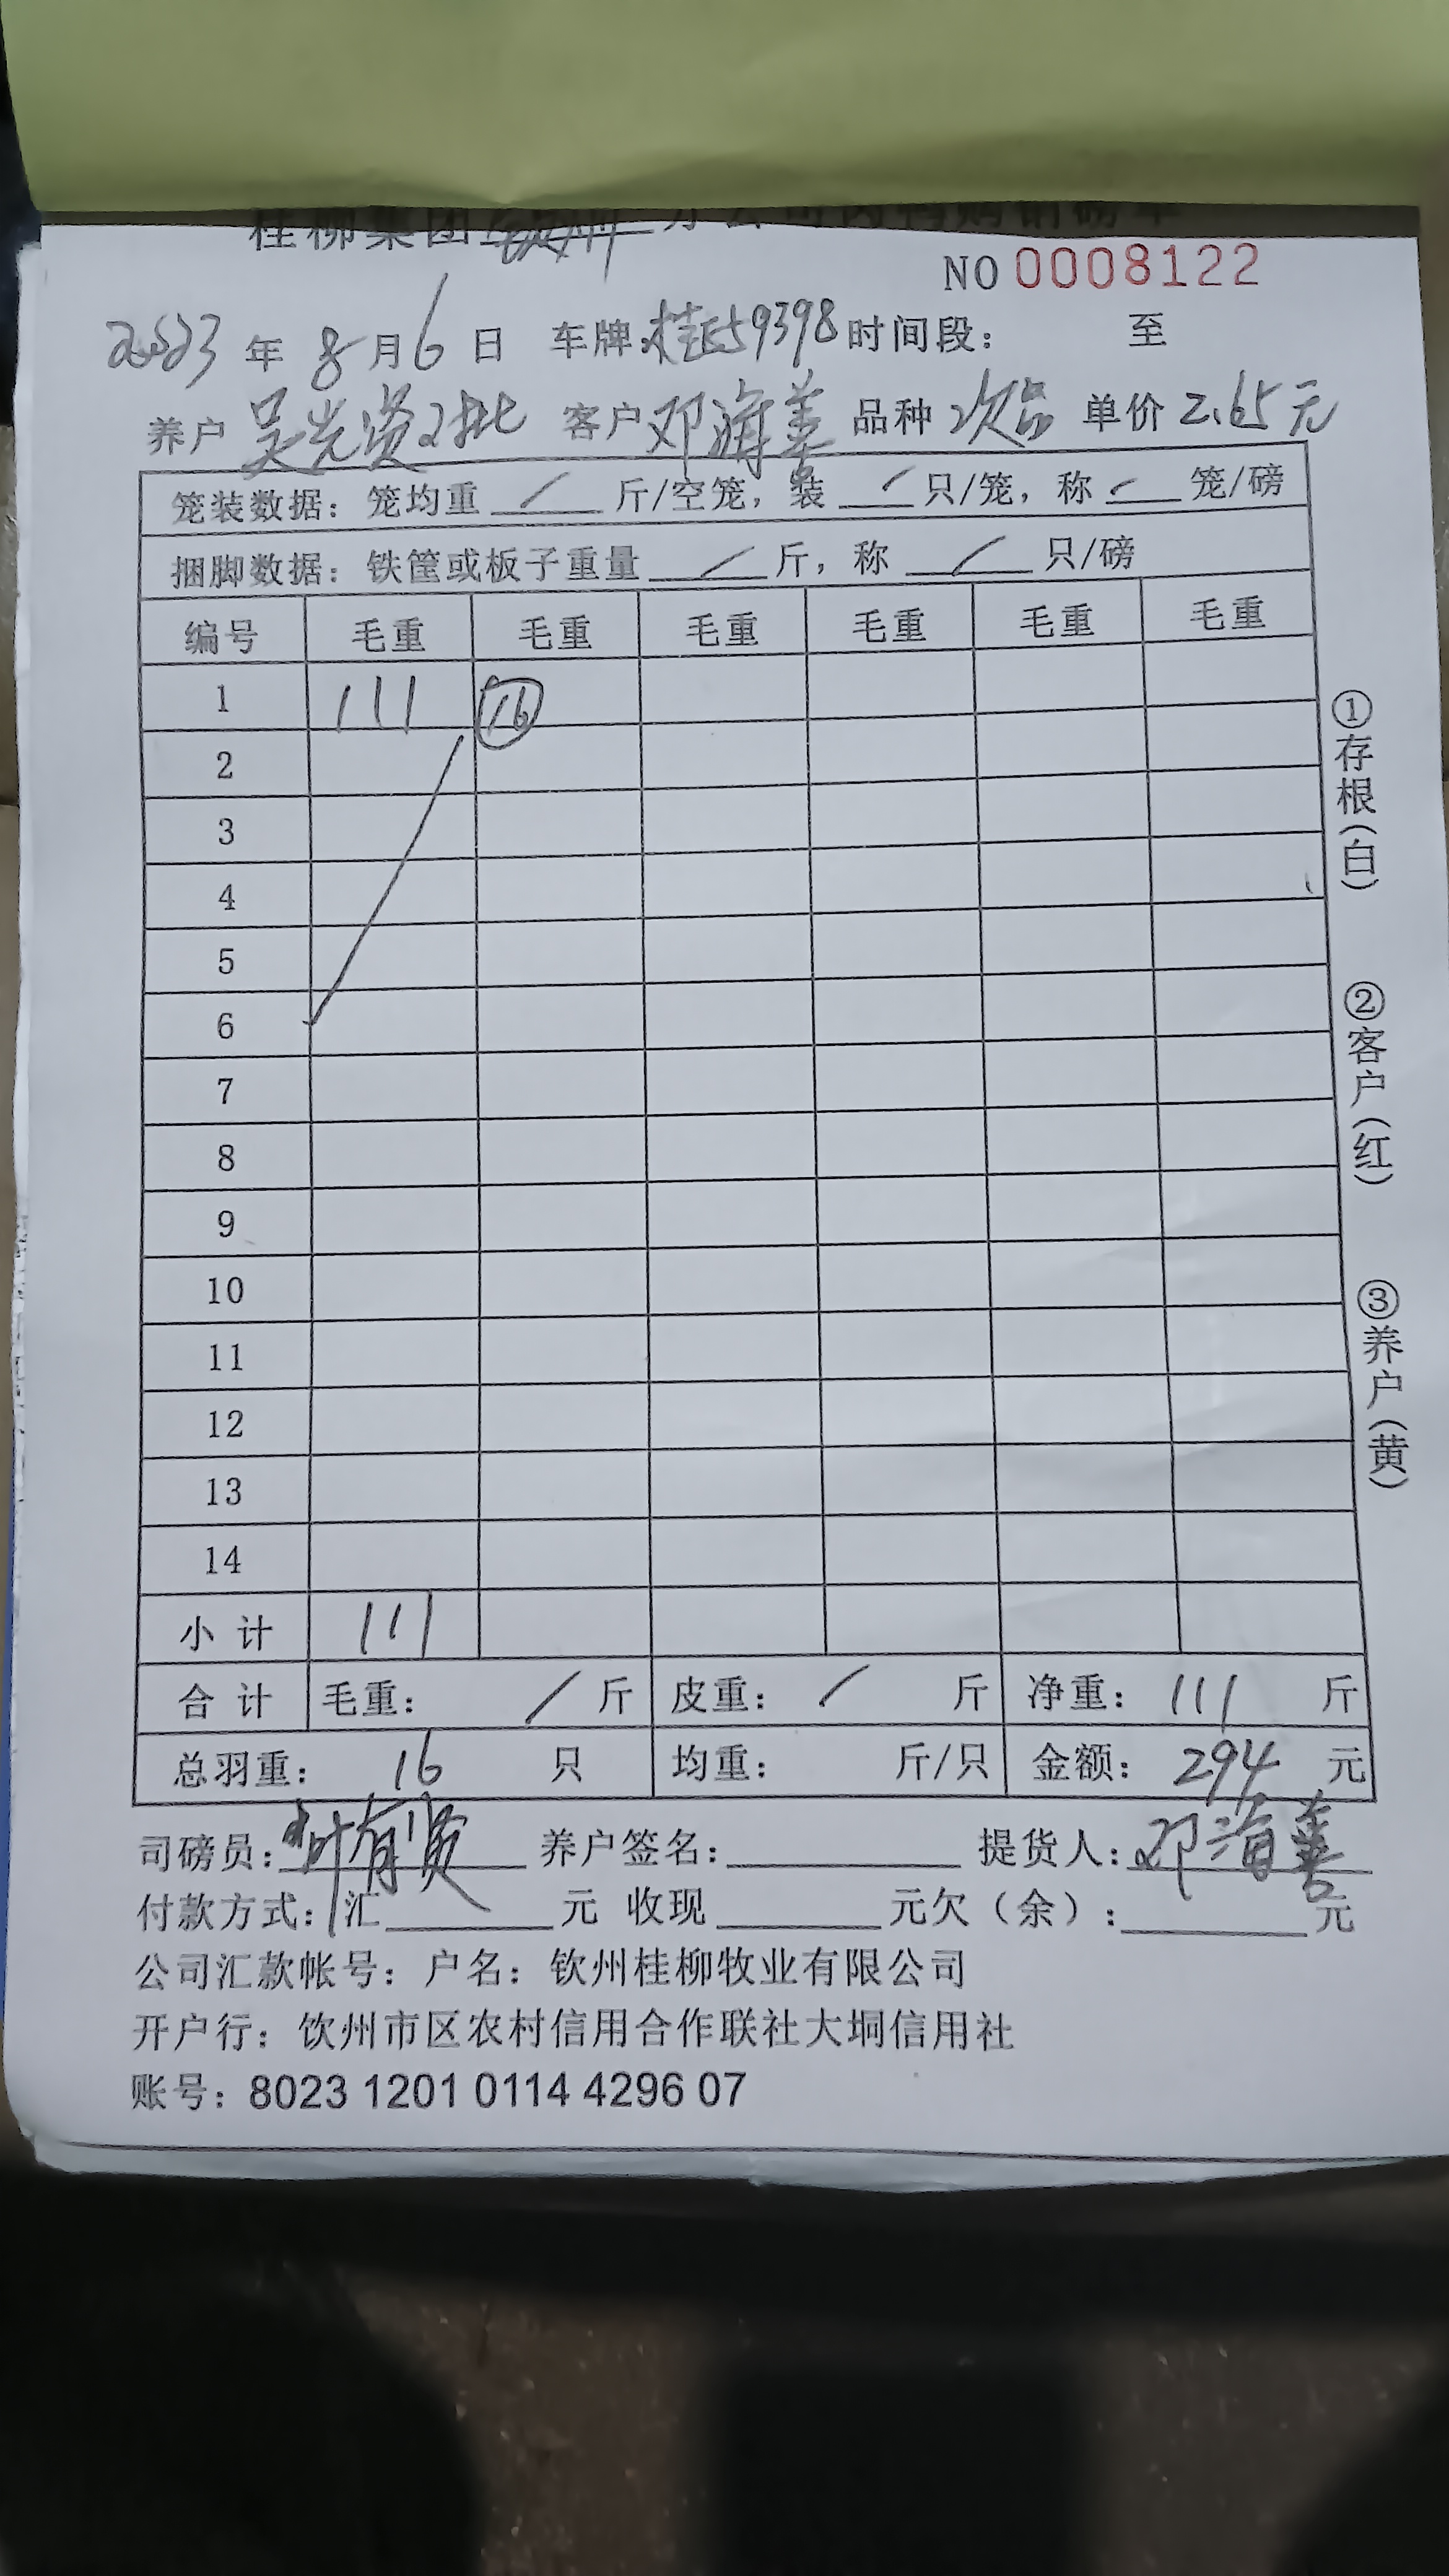 桂柳集团钦州分公司肉鸭购销磅单
NO 0008122
2023年8月6日 车牌:桂E59398 时间段: 至
养户 吴光贤2批 客户 邓海善 品种 次品 单价 2.65元
笼装数据: 笼均重 / 斤/空笼, 装 / 只/笼, 称 / 笼/磅
捆脚数据: 铁筐或板子重量 / 斤, 称 / 只/磅
编号 毛重 毛重 毛重 毛重 毛重 毛重
1 111 16
2
3
4
5
6
7
8
9
10
11
12
13
14
小计 111
合计 毛重: / 斤 皮重: / 斤 净重: 111 斤
总羽重: 16 只 均重: 斤/只 金额: 294 元
司磅员: 叶有贤 养户签名: 提货人: 邓海善
付款方式: 汇 元 收现 元欠(余): 元
公司汇款帐号: 户名: 钦州桂柳牧业有限公司
开户行: 饮州市区农村信用合作联社大垌信用社
账号: 8023 1201 0114 4296 07
①存根(白)
②客户(红)
③养户(黄)